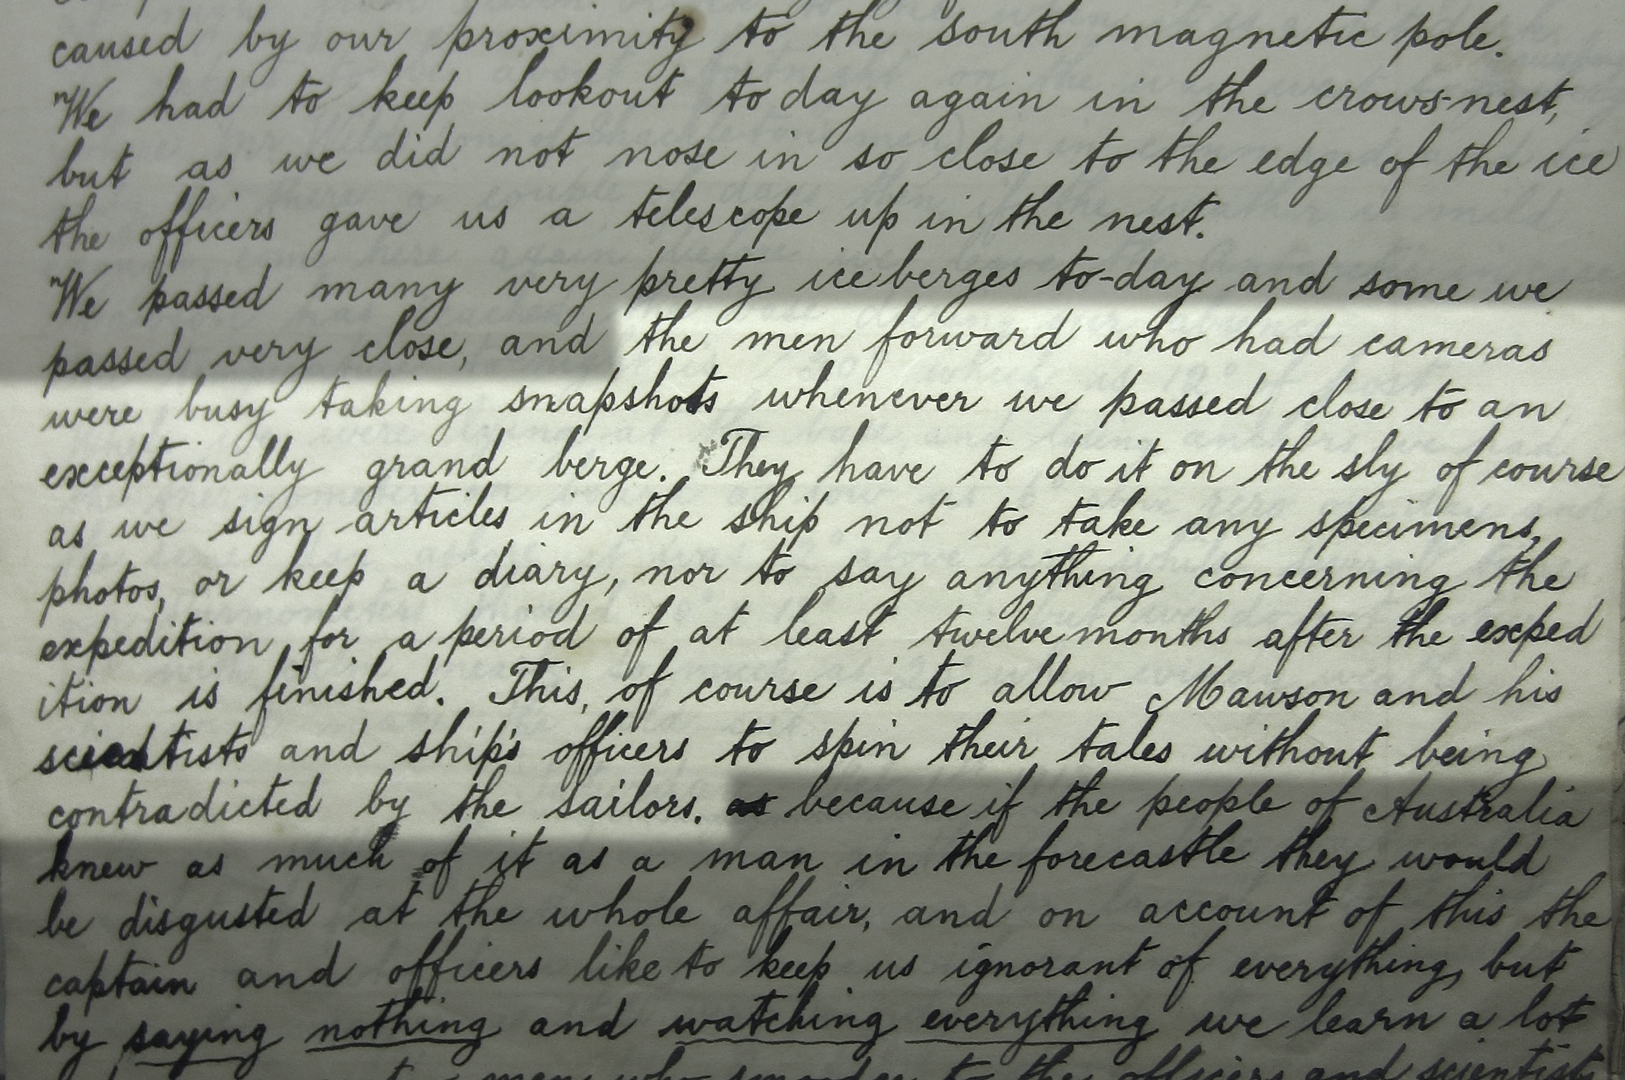 caused by our proximity to the south magnetic pole.
"We had to keep lookout today again in the crows-nest,
but as we did not nose in so close to the edge of the ice
the officers gave us a telescope up in the nest.
"We passed many very pretty ice berges to-day and some we
passed very close, and the men forward who had cameras
were busy taking snapshots whenever we passed close to an
exceptionally grand berge. They have to do it on the sly of course
as we sign articles in the ship not to take any specimens,
photos, or keep a diary, nor to say anything concerning the
expedition for a period of at least twelve months after the exped
ition is finished. This, of course is to allow Mawson and his
scientists and ship's officers to spin their tales without being
contradicted by the sailors. as because if the people of Australia
knew as much of it as a man in the forecastle they would
be disgusted at the whole affair, and on account of this the
captain and officers like to keep us ignorant of everything, but
by saying nothing and watching everything we learn a lot
to the officers and scientists